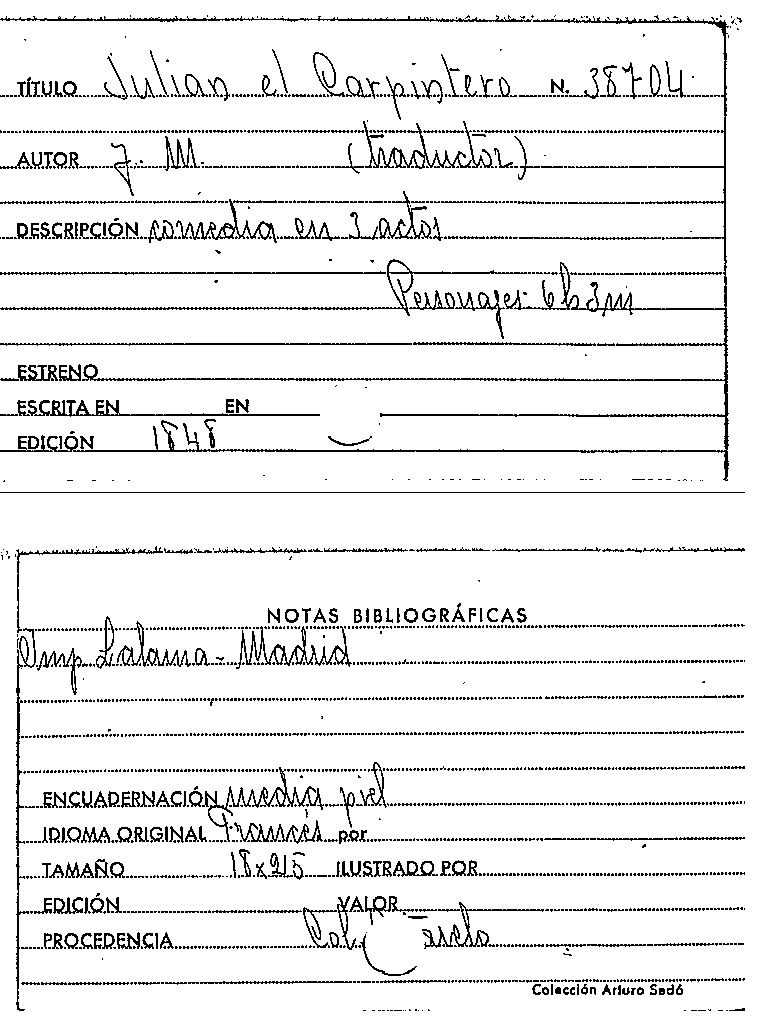 TÍTULO Julian el Carpintero N. 38704
AUTOR J. M. (traductor)
DESCRIPCIÓN comedia en 3 actos
Personajes: 6h 3m
ESTRENO
ESCRITA EN EN
EDICIÓN 1848
NOTAS BIBLIOGRÁFICAS
Imp Lalama - Madrid
ENCUADERNACIÓN media piel
IDIOMA ORIGINAL Francés por
TAMAÑO ILUSTRADO POR
EDICIÓN VALOR
PROCEDENCIA Col.
Colección Arturo Sedó